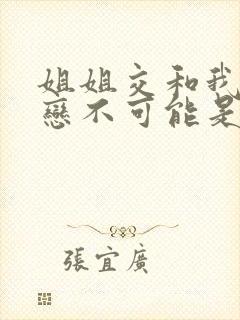 姐姐交和我
戀不可能是
張宜廣